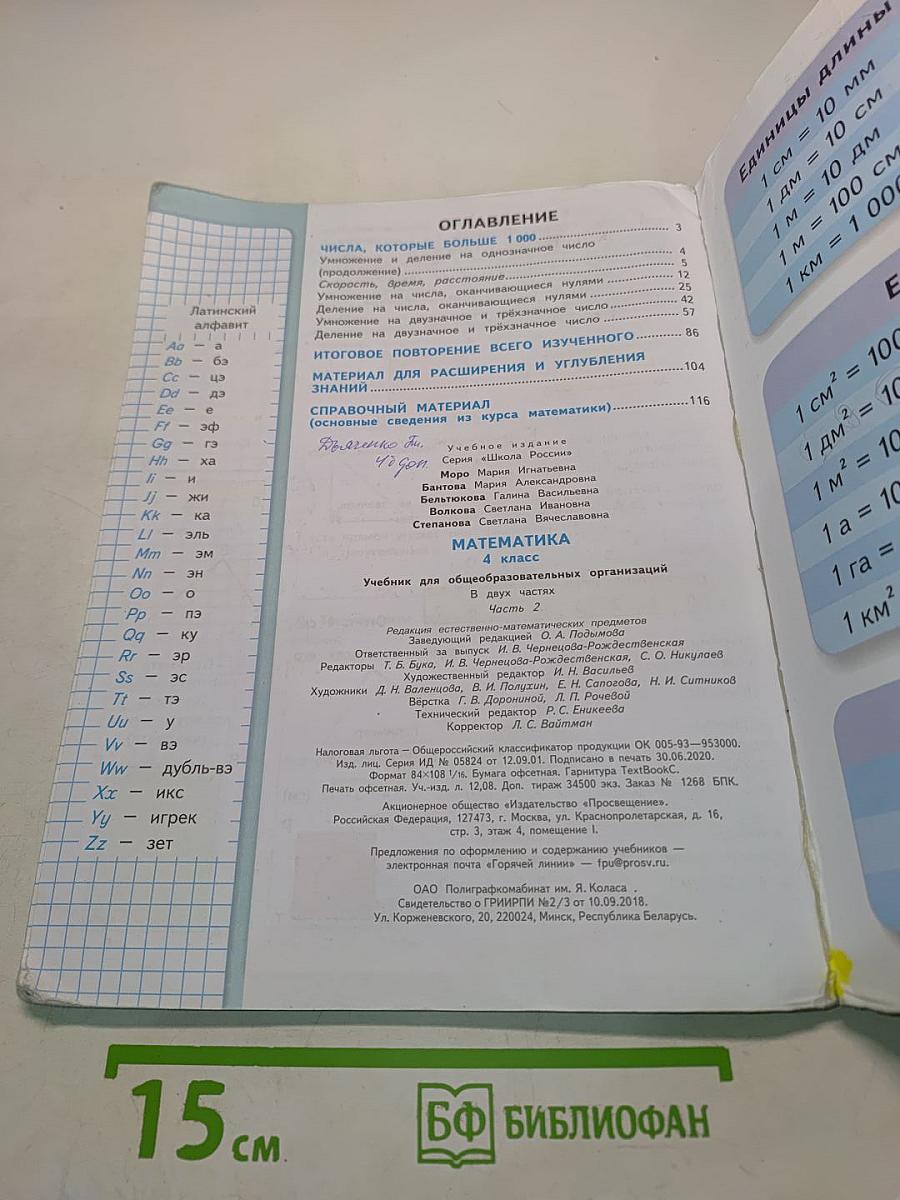 Латинский
алфавит
Aa — а
Bb — бэ
Cc — цэ
Dd — дэ
Ee — е
Ff — эф
Gg — гэ
Hh — ха
Ii — и
Jj — жи
Kk — ка
Ll — эль
Mm — эм
Nn — эн
Oo — о
Pp — пэ
Qq — ку
Rr — эр
Ss — эс
Tt — тэ
Uu — у
Vv — вэ
Ww — дубль-вэ
Xx — икс
Yy — игрек
Zz — зет
ОГЛАВЛЕНИЕ
ЧИСЛА, КОТОРЫЕ БОЛЬШЕ 1 000 ........ 3
Умножение и деление на однозначное число
(продолжение) ........ 4
Скорость, время, расстояние ........ 5
Умножение на числа, оканчивающиеся нулями ........ 12
Деление на числа, оканчивающиеся нулями ........ 25
Умножение на двузначное и трёхзначное число ........ 42
Деление на двузначное и трёхзначное число ........ 57
ИТОГОВОЕ ПОВТОРЕНИЕ ВСЕГО ИЗУЧЕННОГО ........ 86
МАТЕРИАЛ ДЛЯ РАСШИРЕНИЯ И УГЛУБЛЕНИЯ
ЗНАНИЙ ........ 104
СПРАВОЧНЫЙ МАТЕРИАЛ
(основные сведения из курса математики) ........ 116
Дьяченко
Учебное издание
Серия «Школа России»
Моро Мария Игнатьевна
Бантова Мария Александровна
Бельтюкова Галина Васильевна
Волкова Светлана Ивановна
Степанова Светлана Вячеславовна
МАТЕМАТИКА
4 класс
Учебник для общеобразовательных организаций
В двух частях
Часть 2
Редакция естественно-математических предметов
Заведующий редакцией О. А. Подымова
Ответственный за выпуск И. В. Чернецова-Рождественская
Редакторы Т. Б. Бука, И. В. Чернецова-Рождественская, С. О. Никулаев
Художественный редактор И. Н. Васильев
Художники Д. Н. Валенцова, В. И. Полухин, Е. Н. Сапогова, Н. И. Ситников
Вёрстка Г. В. Дорониной, Л. П. Рочевой
Технический редактор Р. С. Еникеева
Корректор Л. С. Вайтман
Налоговая льгота — Общероссийский классификатор продукции ОК 005-93—953000.
Изд. лиц. Серия ИД № 05824 от 12.09.01. Подписано в печать 30.06.2020.
Формат 84×108 1/16. Бумага офсетная. Гарнитура TextBookC.
Печать офсетная. Уч.-изд. л. 12,08. Доп. тираж 34500 экз. Заказ № 1268 БПК.
Акционерное общество «Издательство «Просвещение».
Российская Федерация, 127473, г. Москва, ул. Краснопролетарская, д. 16,
стр. 3, этаж 4, помещение I.
Предложения по оформлению и содержанию учебников —
электронная почта «Горячей линии» — fpu@prosv.ru.
ОАО Полиграфкомабинат им. Я. Коласа .
Свидетельство о ГРИИРПИ №2/3 от 10.09.2018.
Ул. Корженевского, 20, 220024, Минск, Республика Беларусь.
Единицы длины
1 см = 10 мм
1 дм = 10 см
1 м = 10 дм
1 м = 100 см
1 км = 1 000
Е
1 см² = 100
1 дм² = 10
1 м² = 10
1 а = 10
1 га =
1 км²
15 см
БФ БИБЛИОФАН